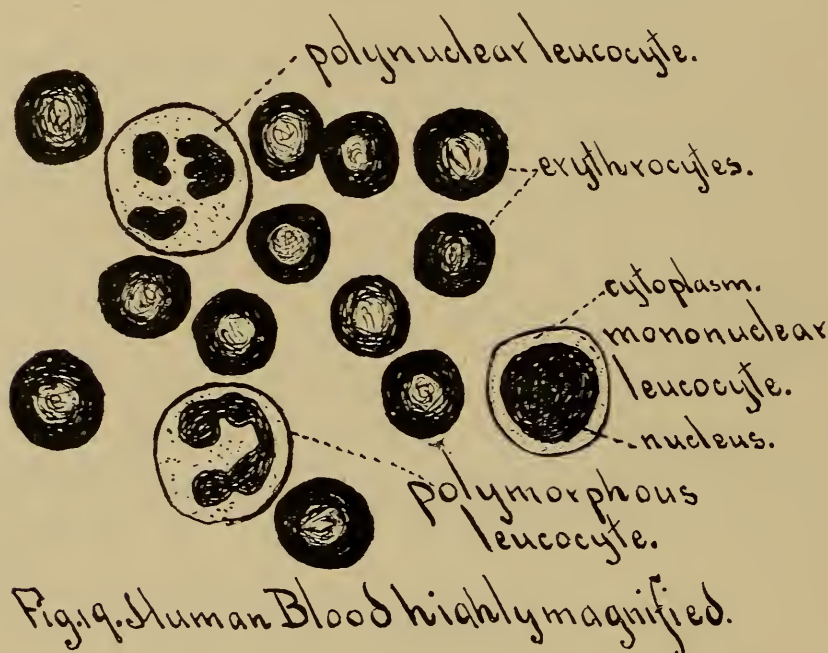 polynuclear leucocyte.
erythrocytes.
cytoplasm.
mononuclear
leucocyte.
nucleus.
polymorphous
leucocyte.
Fig.19. Human Blood highly magnified.